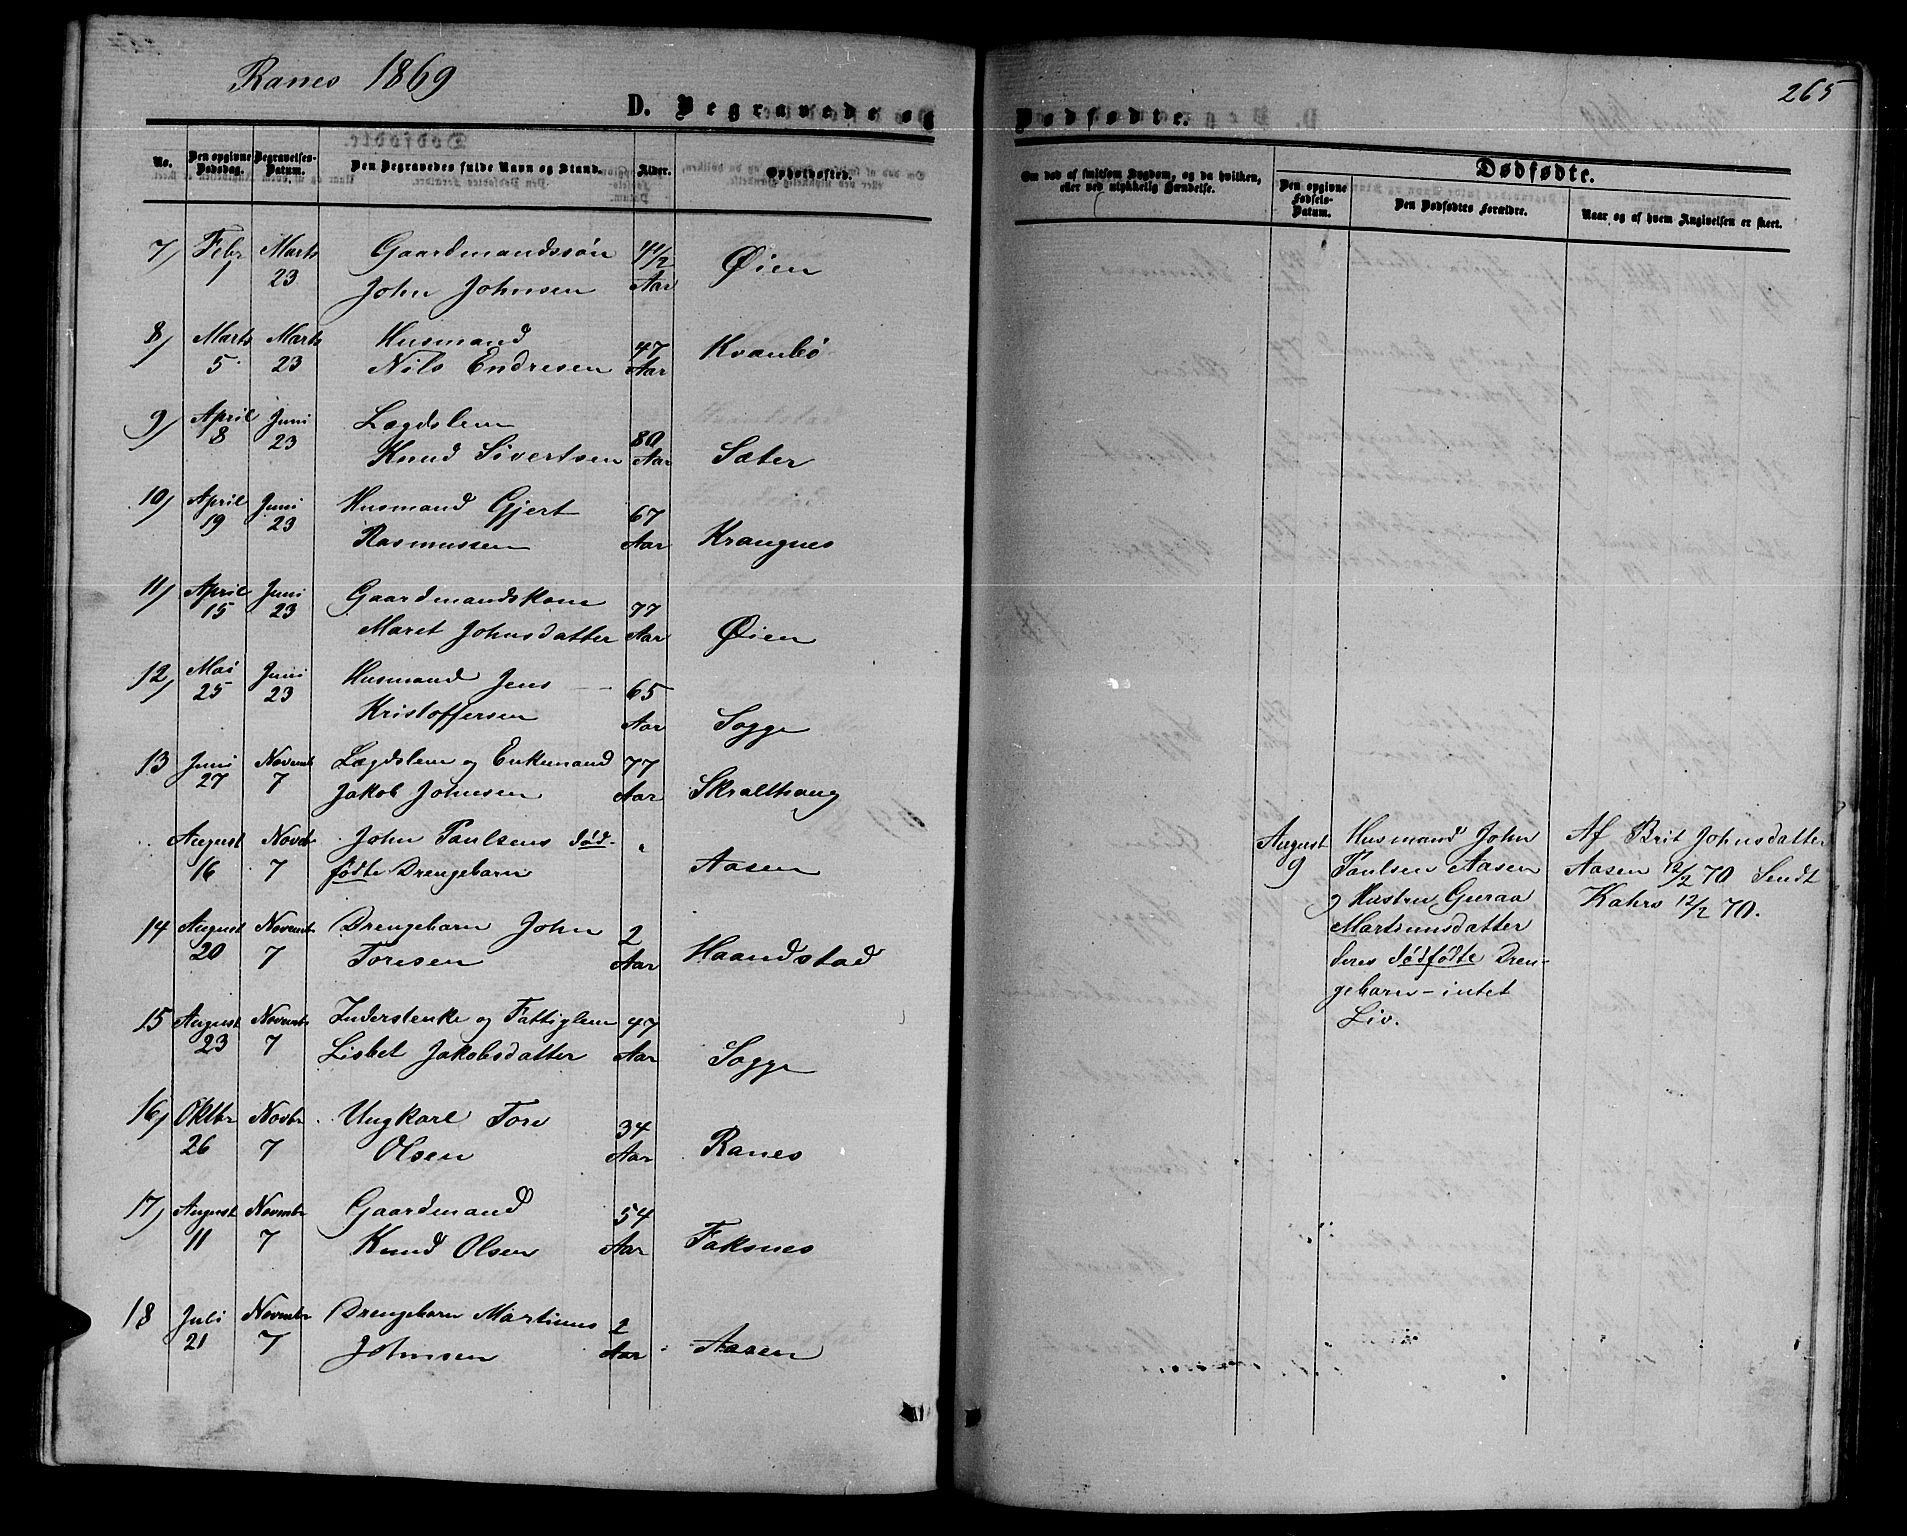 Ranes 1869
265
D. Begravede og Dødfødte.
No.
Den opgivne Dødsdag.
Begravelses-Datum.
Den Begravedes fulde Navn og Stand.
Alder.
Opholdssted.
Om død af smitsom Sygdom, og da hvilken,
eller ved ulykkelig Hændelse.
Dødfødte.
Den opgivne Fødsels-Datum.
Den Dødfødtes Forældre.
Naar og af hvem Angivelsen er skeet.
7) Febr Marts Gaardmandssøn 4 1/2
1 23 John Johnsen Aar Øien
8) Marts Marts Husmand 47 Kvanbø
5 23 Nils Endresen Aar
9) April Juni Lægdslem 80
8 23 Knud Sivertsen Aar Sæter
10) April Juni Husmand Gjert 67
19 23 Rasmussen Aar Krangnes
11) April Juni Gaardmandskone 77
15 23 Maret Johnsdatter Aar Øien
12) Mai Juni Husmand Jens 65
25 23 Kristoffersen Aar Sogge
13 Juni Novemb Lægdslem og Enkemand 77
27 7 Jakob Johnsen Aar Skralthaug
August Novbr John Paulsens død-
16 7 fødte Drengebarn Aasen
14 August Novembr Drengebarn John 2
20 7 Toresen Aar Haandstad
15 August Novembr Inderstenke og Fattiglem 47
23 7 Lisbet Jakobsdatter Aar Sogge
16) Oktbr Novbr Ungkarl Tore 34
26 7 Olsen Aar Ranes
17) August Novmbr Gaardmand 54
11 7 Knud Olsen Aar Faksnes
18 Juli Novembr Drengebarn Martinus 2
21 7 Johnsen Aar Aasen
August
9
Husmand John
Paulsen Aasen
og Hustru Guraa
Martinusdatter
deres dødfødte Dren-
gebarn – intet
Liv.
Af Brit Johnsdatter
Aasen 12/2 70 Sendt
12/2 70.